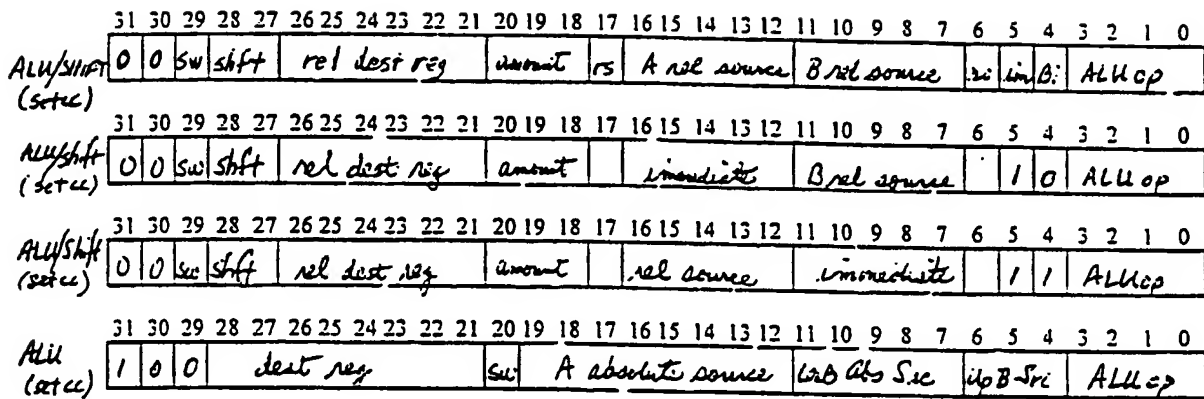 31 30 29 28 27 26 25 24 23 22 21 20 19 18 17 16 15 14 13 12 11 10 9 8 7 6 5 4 3 2 1 0
ALU/SHIFT 0 0 sw shft rel dest reg amount rs A rel source B rel source im Bi ALU op
(setcc)
31 30 29 28 27 26 25 24 23 22 21 20 19 18 17 16 15 14 13 12 11 10 9 8 7 6 5 4 3 2 1 0
ALU/shft 0 0 sw shft rel dest reg amount immediate B rel source 1 0 ALU op
(setcc)
31 30 29 28 27 26 25 24 23 22 21 20 19 18 17 16 15 14 13 12 11 10 9 8 7 6 5 4 3 2 1 0
ALU/Shift 0 0 sw shft rel dest reg amount rel source immediate 1 1 ALU op
(setcc)
31 30 29 28 27 26 25 24 23 22 21 20 19 18 17 16 15 14 13 12 11 10 9 8 7 6 5 4 3 2 1 0
ALU 1 0 0 dest reg sw A absolute source Abs Src ALU op
(setcc)